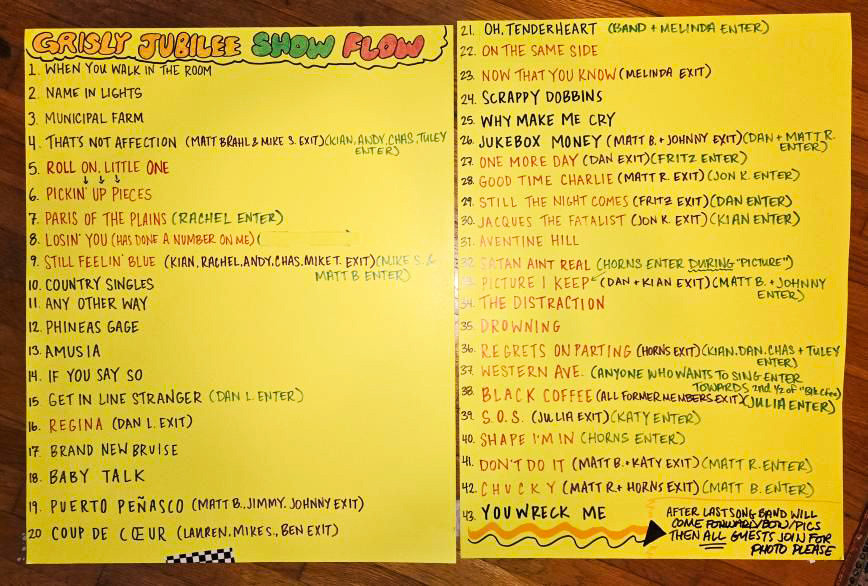 GRISLY JUBILEE SHOW FLOW
1. WHEN YOU WALK IN THE ROOM
2. NAME IN LIGHTS
3. MUNICIPAL FARM
4. THAT'S NOT AFFECTION (MATT BRAHL & MIKE S. EXIT) (KIAN, ANDY, CHAS, TULEY
ENTER)
5. ROLL ON, LITTLE ONE
↓ ↓ ↓
6. PICKIN' UP PIECES
7. PARIS OF THE PLAINS (RACHEL ENTER)
8. LOSIN' YOU (HAS DONE A NUMBER ON ME) (
9. STILL FEELIN' BLUE (KIAN, RACHEL, ANDY, CHAS, MIKE T. EXIT) (MIKE S. &
MATT B ENTER)
10. COUNTRY SINGLES
11. ANY OTHER WAY
12. PHINEAS GAGE
13. AMUSIA
14. IF YOU SAY SO
15 GET IN LINE STRANGER (DAN L. ENTER)
16. REGINA (DAN L. EXIT)
17. BRAND NEW BRUISE
18. BABY TALK
19. PUERTO PEÑASCO (MATT B., JIMMY, JOHNNY EXIT)
20 COUP DE CŒUR (LAUREN, MIKE S., BEN EXIT)
21. OH, TENDERHEART (BAND + MELINDA ENTER)
22. ON THE SAME SIDE
23. NOW THAT YOU KNOW (MELINDA EXIT)
24. SCRAPPY DOBBINS
25. WHY MAKE ME CRY
26. JUKEBOX MONEY (MATT B. + JOHNNY EXIT) (DAN + MATT R.
ENTER)
27. ONE MORE DAY (DAN EXIT) (FRITZ ENTER)
28. GOOD TIME CHARLIE (MATT R. EXIT) (JON K. ENTER)
29. STILL THE NIGHT COMES (FRITZ EXIT) (DAN ENTER)
30. JACQUES THE FATALIST (JON K. EXIT) (KIAN ENTER)
31. AVENTINE HILL
32. SATAN AINT REAL (HORNS ENTER DURING "PICTURE")
33. PICTURE I KEEP (DAN + KIAN EXIT) (MATT B. + JOHNNY
ENTER)
34. THE DISTRACTION
35. DROWNING
36. REGRETS ON PARTING (HORNS EXIT) (KIAN, DAN, CHAS + TULEY
ENTER)
37. WESTERN AVE. (ANYONE WHO WANTS TO SING ENTER
TOWARDS 2nd 1/2 of "Blk Cfee)
38. BLACK COFFEE (ALL FORMER MEMBERS EXIT) (JULIA ENTER)
39. S.O.S. (JULIA EXIT) (KATY ENTER)
40. SHAPE I'M IN (HORNS ENTER)
41. DON'T DO IT (MATT B. + KATY EXIT) (MATT R. ENTER)
42. CHUCKY (MATT R + HORNS EXIT) (MATT B. ENTER)
43. YOU WRECK ME
AFTER LAST SONG BAND WILL
COME FORWARD/BOW/PICS
THEN ALL GUESTS JOIN FOR
PHOTO PLEASE